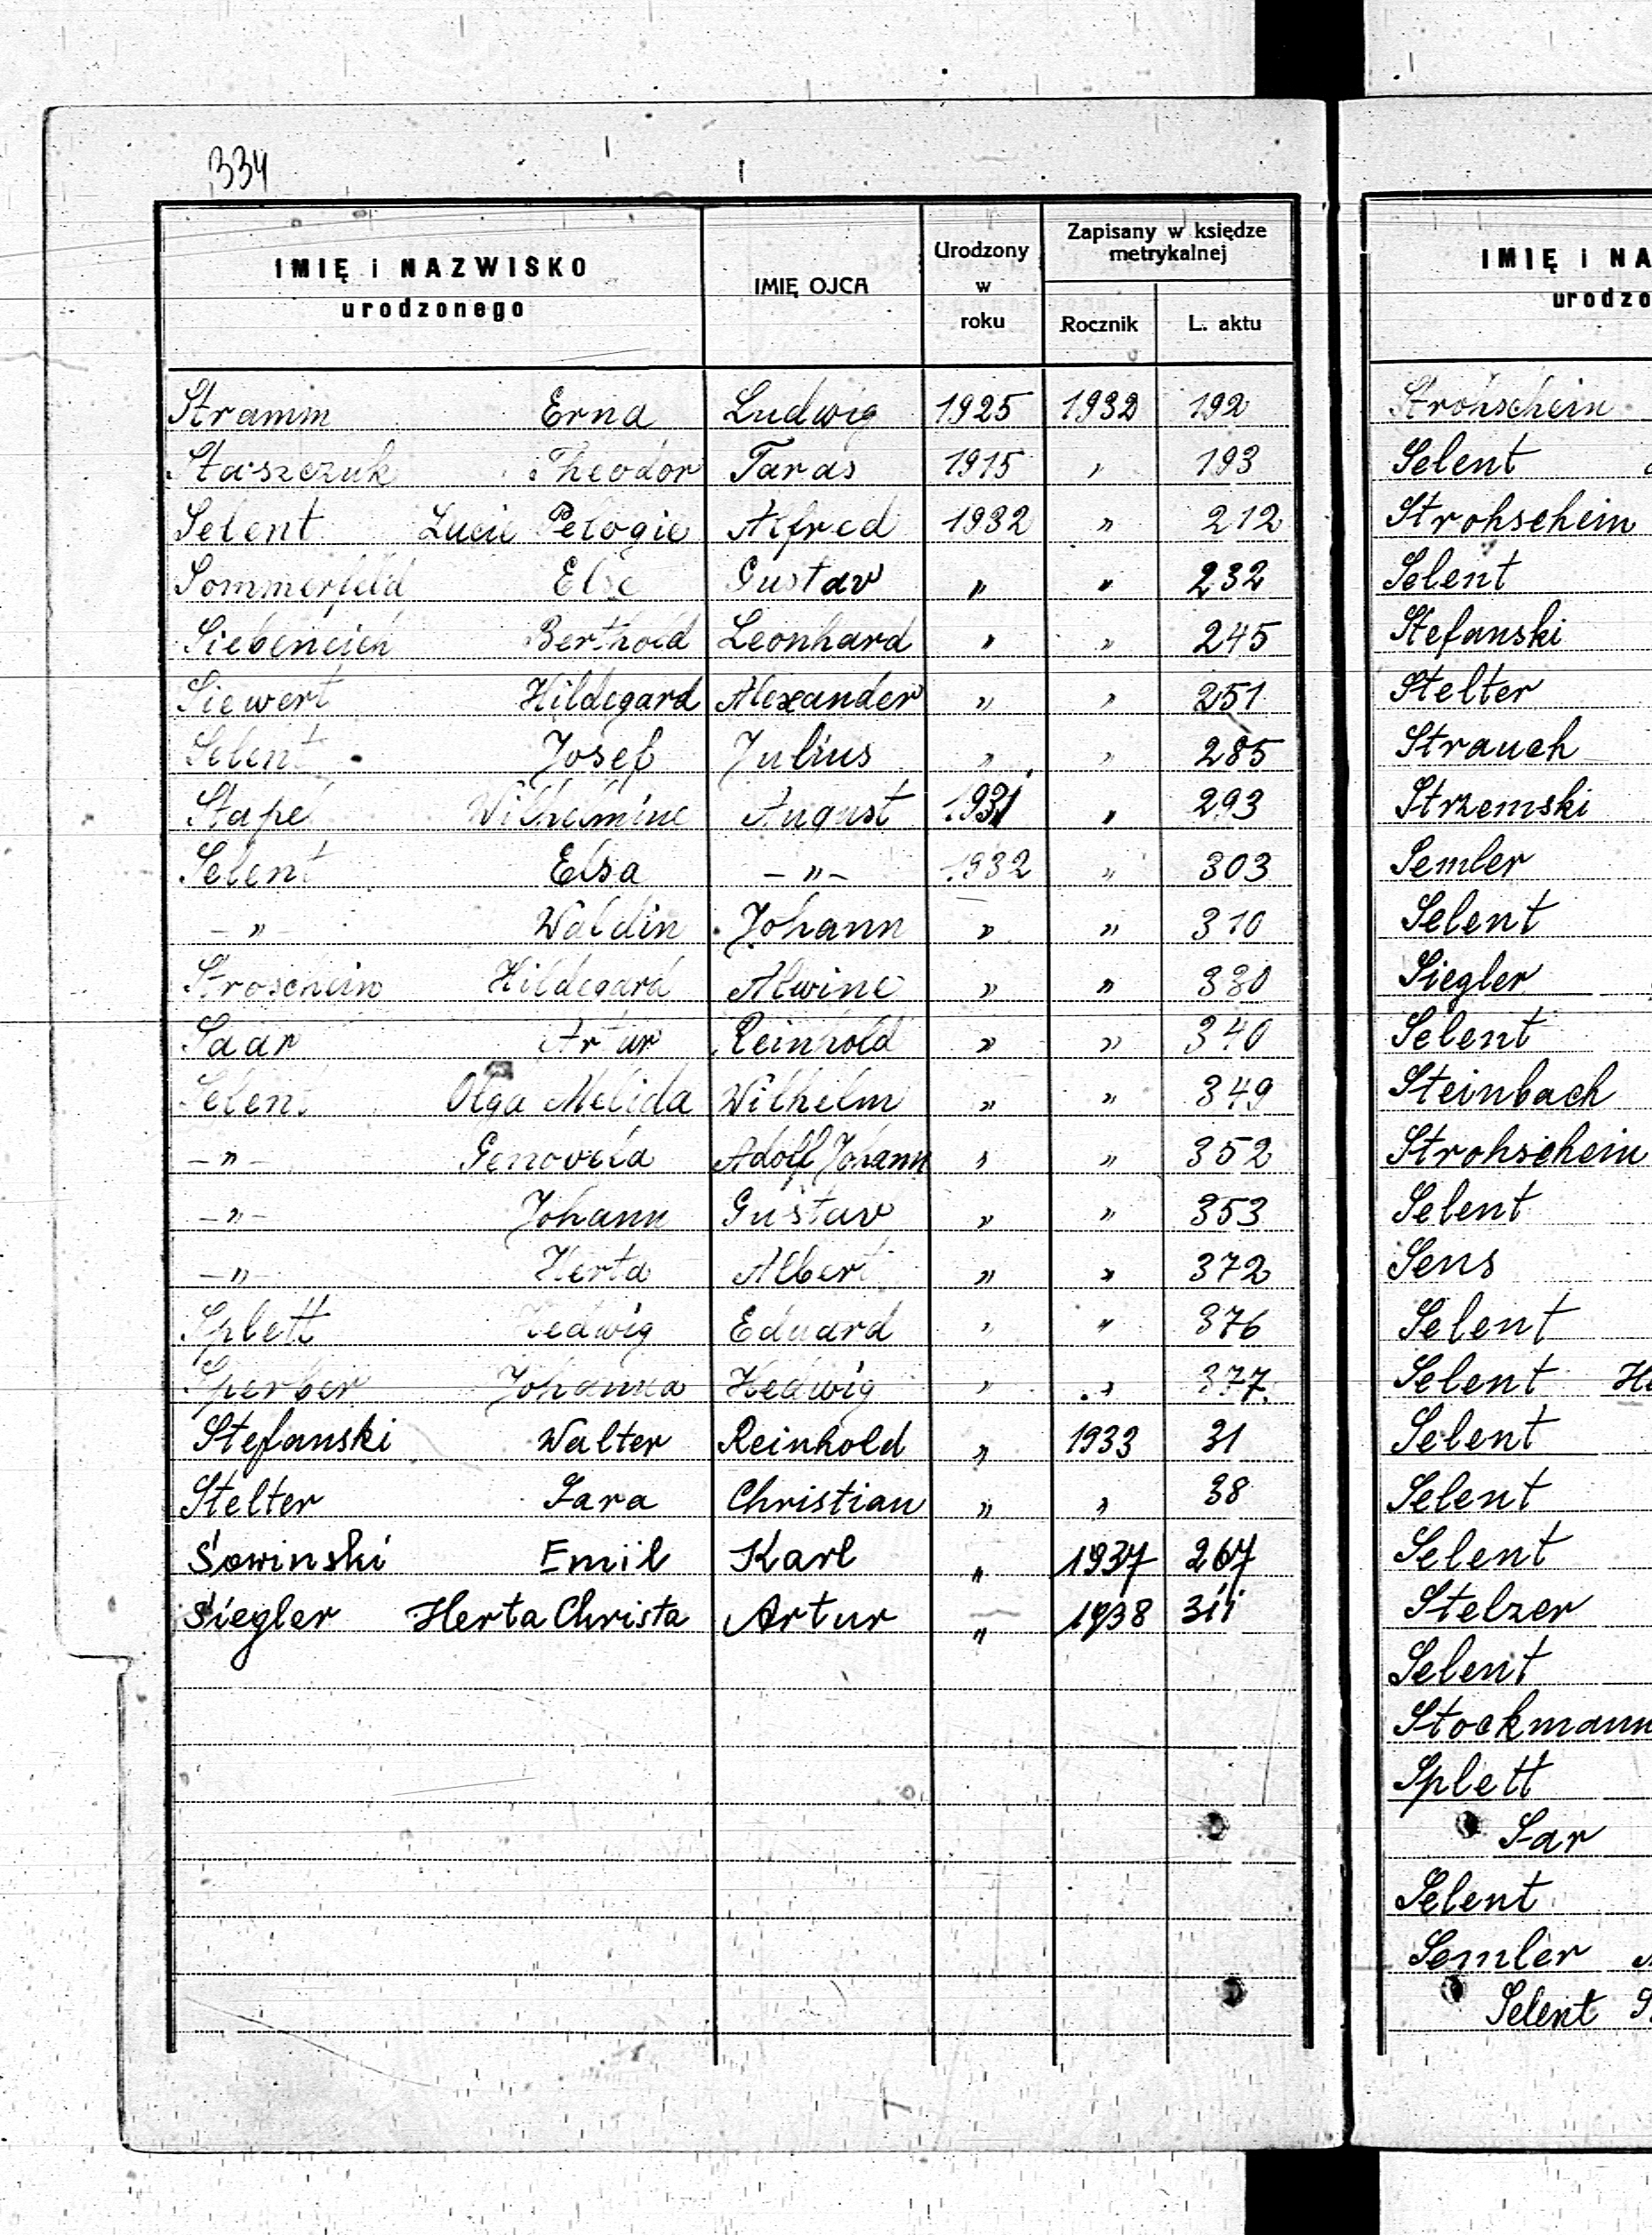 334
IMIĘ i NAZWISKO
urodzonego
IMIĘ OJCA
Urodzony
w
roku
Zapisany w księdze
metrykalnej
Rocznik L. aktu
Stramm Erna Ludwig 1925 1932 192
Staszczuk Theodor Taras 1915 " 193
Selent Lucie Pelogie Alfred 1932 " 212
Sommerfeld Else Gustav " " 232
Siebeneich Berthold Leonhard " " 245
Siewert Hildegard Alexander " " 251
Selent Josef Julius " " 285
Stapel Wilhelmine August 1931 " 293
Selent Elsa -"- 1932 " 303
-"- Waldin Johann " " 310
Stroschein Hildegard Alwine " " 330
Saar Artur Reinhold " " 340
Selent Olga Melida Wilhelm " " 349
-"- Genovefa Adolf Johann " " 352
-"- Johann Gustav " " 353
-"- Herta Albert " " 372
Splett Hedwig Eduard " " 376
Sperber Johanna Hedwig " " 377
Stefanski Walter Reinhold " 1933 31
Stelter Sara Christian " " 38
Sowinski Emil Karl " 1937 267
Siegler Herta Christa Artur " 1938 311
IMIĘ i NA
urodzo
Strohschein
Selent
Strohschein
Selent
Stefanski
Stelter
Strauch
Strzemski
Semler
Selent
Siegler
Selent
Steinbach
Strohschein
Selent
Sens
Selent
Selent He
Selent
Selent
Selent
Stelzer
Selent
Stockmann
Splett
Sar
Selent
Semler
Selent